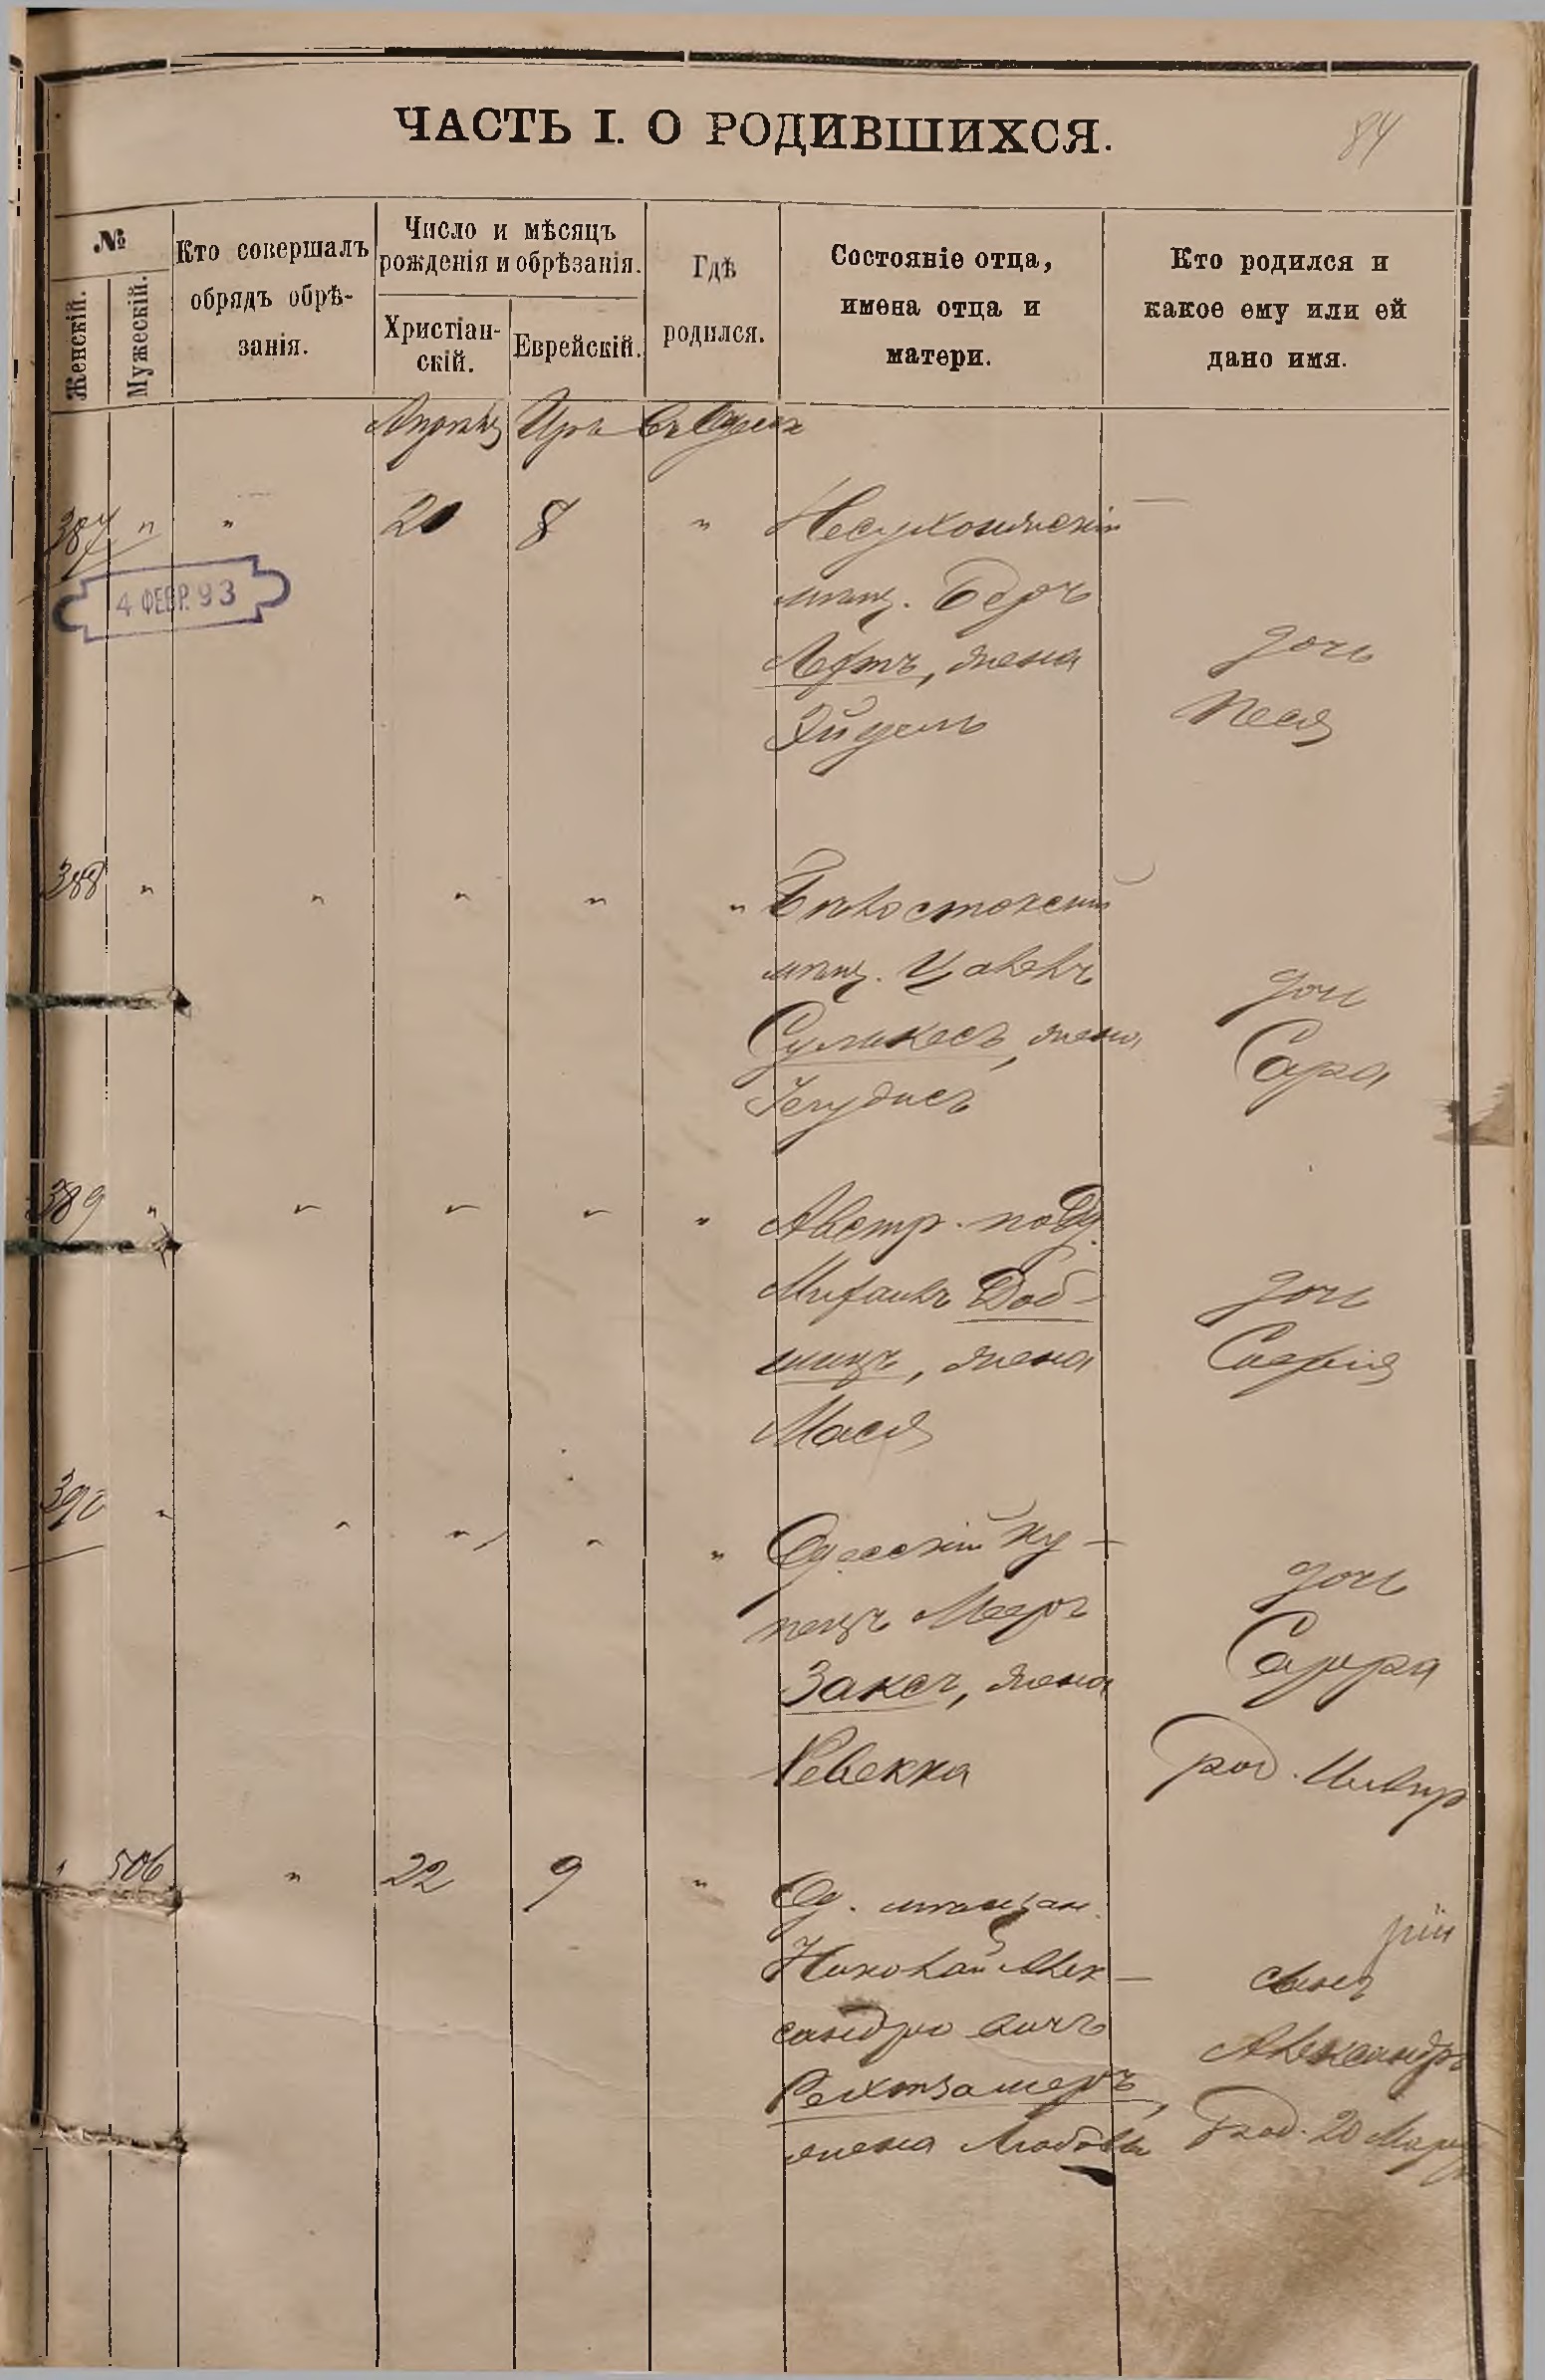 ЧАСТЬ I. О РОДИВШИХСЯ.
84
№
Женскій.
Мужескій.
Кто совершалъ
обрядъ обрѣ-
занія.
Число и мѣсяцъ
рожденія и обрѣзанія.
Христіан-
скій.
Еврейскій.
Гдѣ
родился.
Состояніе отца,
имена отца и
матери.
Кто родился и
какое ему или ей
дано имя.
Апрѣль Іяръ въ Одессѣ
387 " " 20 8 "
4 ФЕВР. 93
мѣщ. Беръ
жена
Эйдель
дочь
Песя
388 " " " " " Бѣлостокскій
мѣщ.
жена
Іегудисъ
дочь
Сара
389 " " " " " Австр. подд.
Михаилъ Доб-
шицъ, жена
Мася
дочь
Софія
390 " " " " " Одесскій ку-
пецъ Мееръ
Заксъ, жена
Ревекка
дочь
Сарра
род.
" 506 " 22 9 " Од. мѣщан.
Николай Алек-
сандровичъ
жена Любовь
сынъ
Александръ
род. 20 Марта